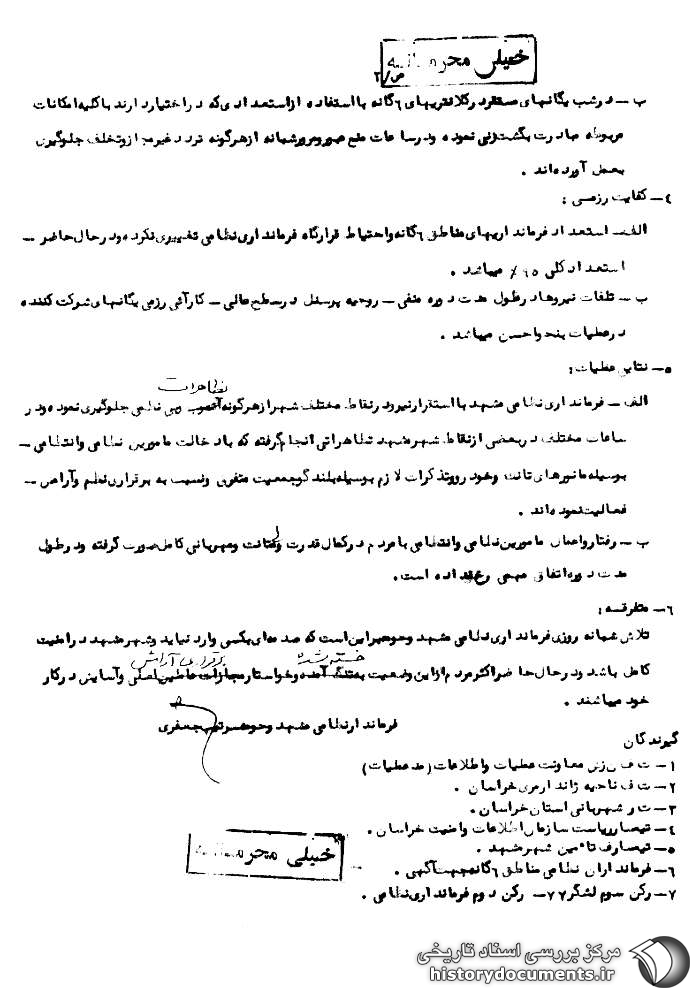 خیلی محرمانه
ص/۲
ب – در شب یگانهای مستقر در کلانتریهای ۶ گانه با استفاده از استعدادی که در اختیار دارند با کلیه امکانات
مربوطه مبادرت بگشت زنی نموده و در ساعات منع عبور و مرور شبانه از هرگونه تردد غیرمجاز و تخلف جلوگیری
بعمل آورده‌اند .
٤- کفایت رزمی :
الف – استعداد فرمانداریهای مناطق ۶ گانه و احتیاط قرارگاه فرمانداری نظامی تغییری نکرده و در حال حاضر –
استعداد کلی ۶۵٪ میباشد .
ب – تلفات نیروها در طول مدت دوره منفی – روحیه پرسنل در سطح عالی – کارآئی رزمی یگانهای شرکت کننده
در عملیات بنحو احسن میباشد .
۵- نتایج عملیات :
تظاهرات
الف – فرمانداری نظامی مشهد با استقرار نیرو در نقاط مختلف شهر از هرگونه آشوب و بی نظمی جلوگیری نموده و در
ساعات مختلف در بعضی از نقاط شهر مشهد تظاهراتی انجام گرفته که با دخالت مامورین نظامی و انتظامی –
بوسیله مانورهای تانک و خودرو و تذکرات لازم بوسیله بلندگو جمعیت متفرق و نسبت به برقراری نظم و آرامش –
فعالیت نموده‌اند .
ب – رفتار و اعمال مامورین نظامی و انتظامی با مردم در کمال قدرت و متانت و مهربانی کامل صورت گرفته و در طول
مدت دوره اتفاق مهمی رخ نداده است.
۶- متفرقه :
تلاش شبانه روزی فرمانداری نظامی مشهد و حومه بر این است که صدمه‌ای بکسی وارد نیاید و شهر مشهد در امنیت
خسته شده برقراری آرامش
کامل باشد و در حال حاضر اکثر مردم از این وضعیت به تنگ آمده و خواستار مجازات عاملین اصلی و آسایش در کار
خود میباشند .
فرماندار نظامی مشهد و حومه سرتیپ جعفری
گیرندگان
۱- معاونت عملیات و اطلاعات (مد عملیات)
۲- ناحیه ژاندارمری خراسان .
۳- شهربانی استان خراسان .
٤- تیمسار ریاست سازمان اطلاعات و امنیت خراسان .
۵- تیمسار ف تامین شهر مشهد .
۶- فرمانداران نظامی مناطق ۶ گانه جهت آگهی .
۷- رکن سوم لشگر ۷۷ – رکن دوم فرمانداری نظامی .
خیلی محرمانه
مرکز بررسی اسناد تاریخی
historydocuments.ir